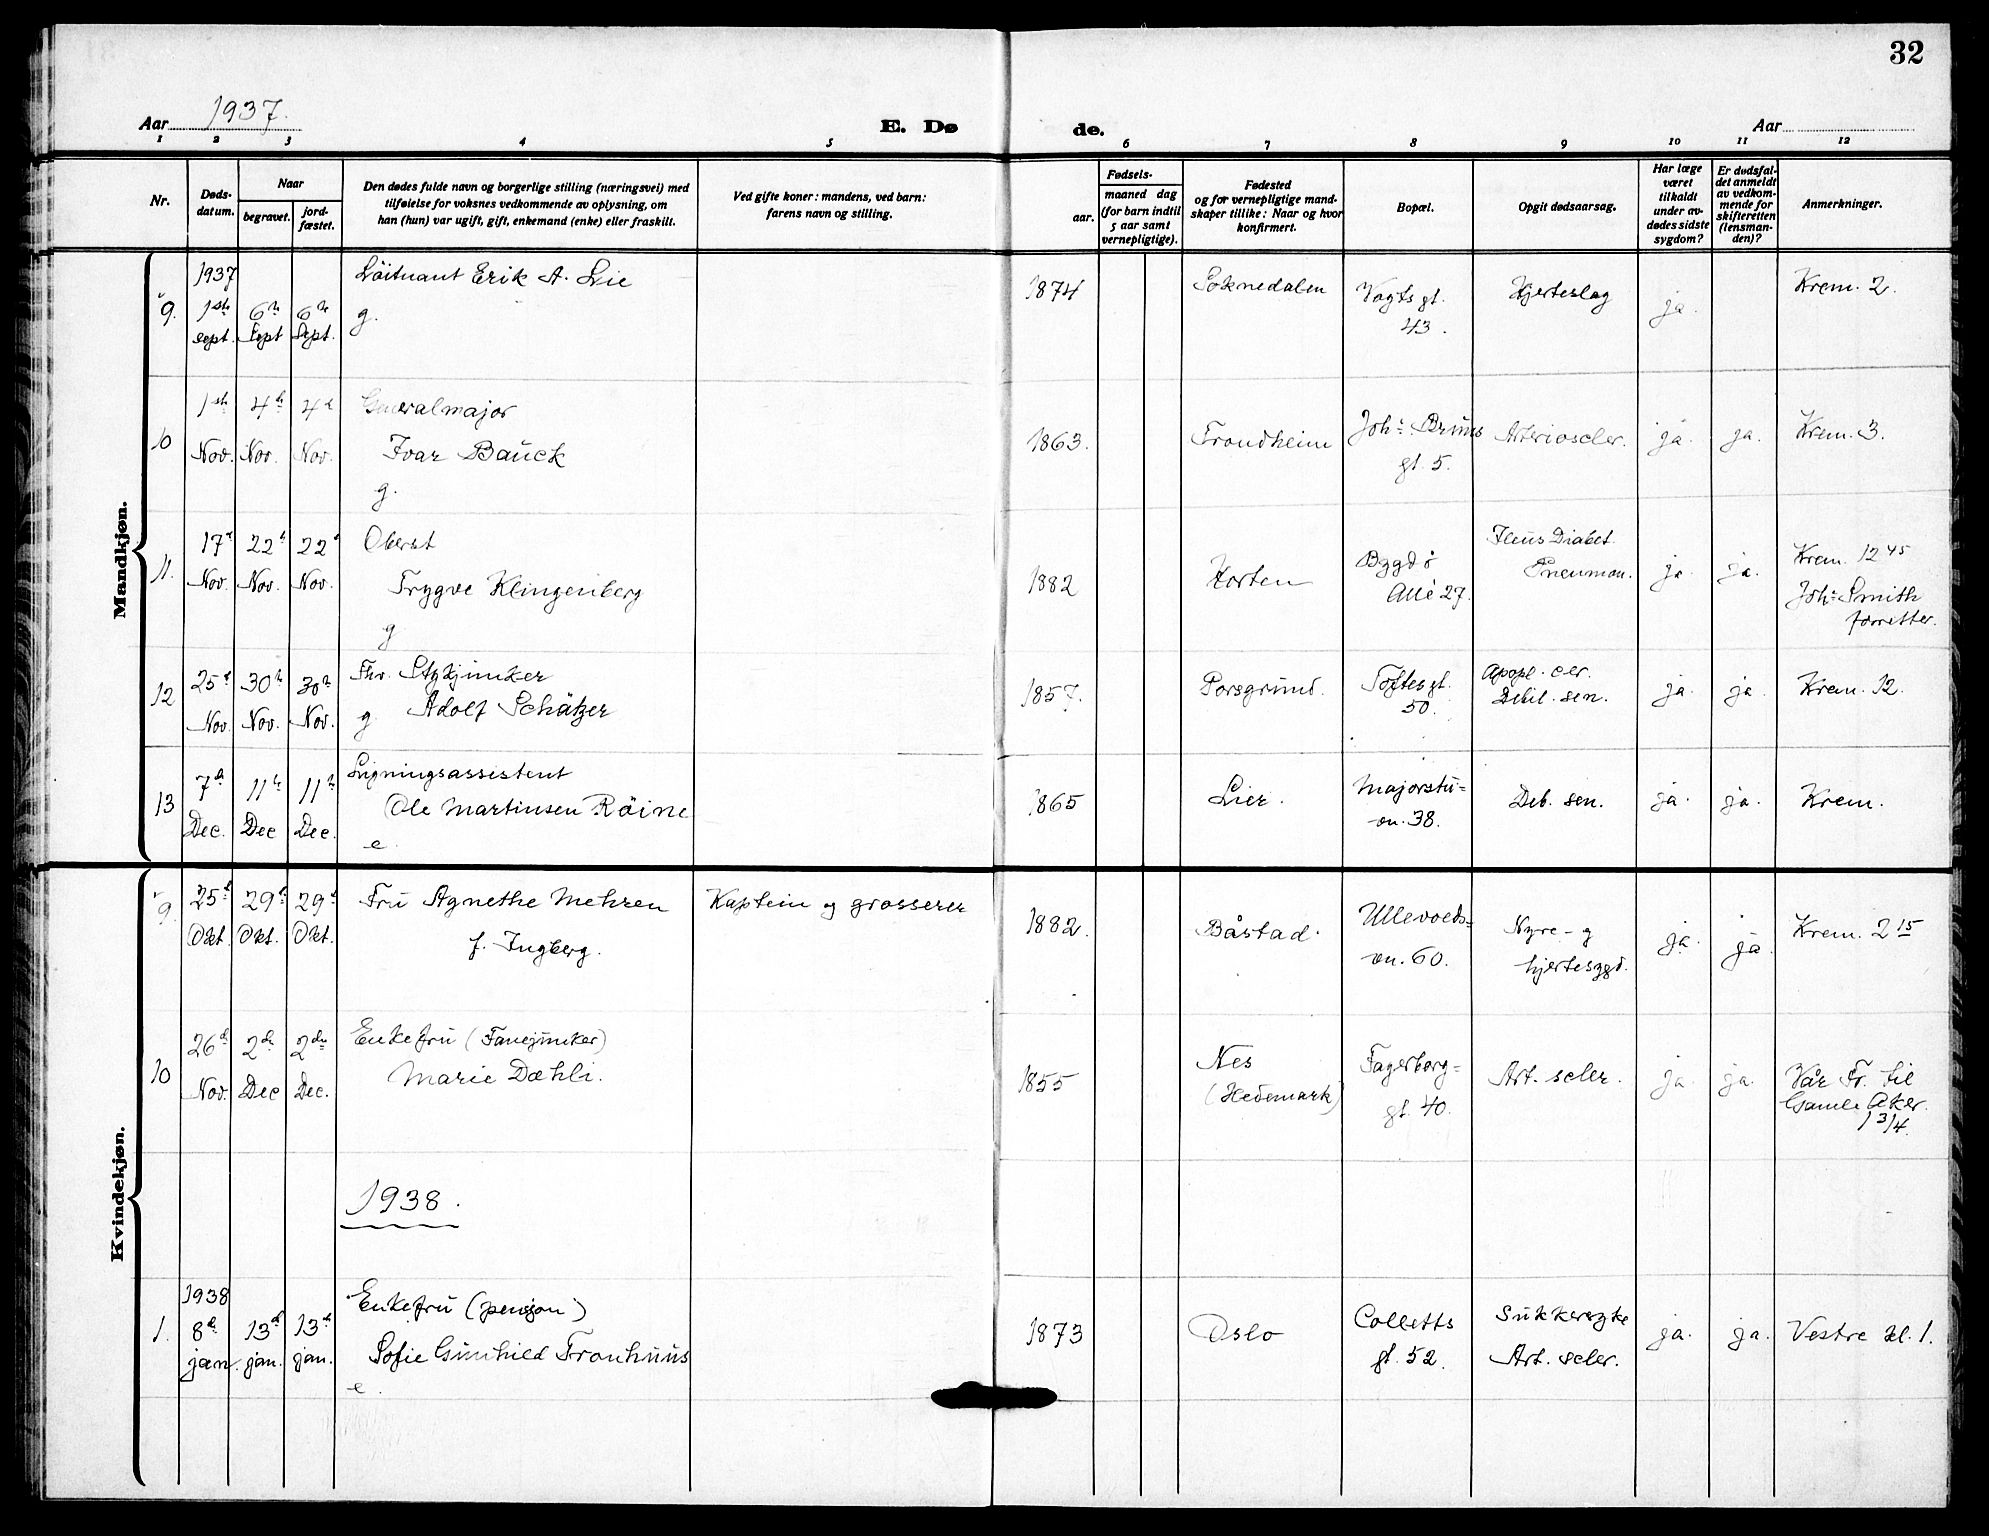 32
Aar 1937.
E. Dø de.
Aar
1 2 3 4 5 6 7 8 9 10 11 12
Nr.
Døds-
datum.
Naar
begravet.
jord-
fæstet.
Den dødes fulde navn og borgerlige stilling (næringsvei) med
tilføielse for voksnes vedkommende av oplysning, om
han (hun) var ugift, gift, enkemand (enke) eller fraskilt.
Ved gifte koner: mandens, ved barn:
farens navn og stilling.
Fødsels-
aar.
maaned dag
(for barn indtil
5 aar samt
vernepligtige).
Fødested
og for vernepligtige mand-
skaper tillike: Naar og hvor
konfirmert.
Bopæl.
Opgit dødsaarsag.
Har læge
været
tilkaldt
under av-
dødes sidste
sygdom?
Er dødsfal-
det anmeldt
av vedkom-
mende for
skifteretten
(lensman-
den)?
Anmerkninger.
Mandkjøn.
9. 1937 1ste sept. 6te Sept 6te Sept.
Løitnant Erik A. Lie
g.
1874 Soknedalen
Vogts gt.
43.
Hjerteslag ja. Krem. 2.
10 1ste Nov. 4d Nov. 4d Nov.
Generalmajor
Ivar Bauck
g.
1863. Trondheim
Johs. Bruns
gt. 5.
Arterioscler. ja. ja. Krem. 3.
11. 17d Nov. 22d Nov. 22d Nov.
Oberst
Trygve Klingenberg
g
1882 Horten
Bygdø
Allé 27.
Ileus Diabet.
Pneumon.
ja. ja.
Krem. 12 45
Johs. Smith
forretter.
12 25d Nov. 30te Nov. 30te Nov.
Fhv. Stykjunker
g Adolf Schätzer
1857. Porsgrund.
Toftes gt.
50.
Apopl. cer.
Debil. sen.
ja. ja. Krem. 12.
13 7d Dec. 11te Dec 11te Dec.
Ligningsassistent
Ole Martinsen Röine
e.
1865 Lier.
Majorstu-
vn. 38.
Deb. sen. ja. ja. Krem.
Kvindekjøn.
9. 25d Okt 29d Okt. 29d Okt.
Fru Agnethe Mehren
f. Ingberg.
Kaptein og grosserer
1882. Båstad.
Ullevolds-
vn. 60.
Nyre- g
hjertesygd.
ja. ja Krem. 2 15
10 26d Nov. 2den Dec 2den Dec.
Enkefru (Fanejunker)
Marie Dæhli.
1855
Nes
(Hedemark)
Fagerborg-
gt. 40.
Art. scler. ja. ja.
Vår Fr. til
Gamle Aker.
1 3/4.
1938.
1. 1938 8d jan. 13d jan. 13d jan.
Enkefru (pensjon)
Sofie Gunhild Tronhuus
e.
1873 Oslo
Colletts
gt. 52.
Sukkersyke
Art. scler.
ja. ja. Vestre kl. 1.